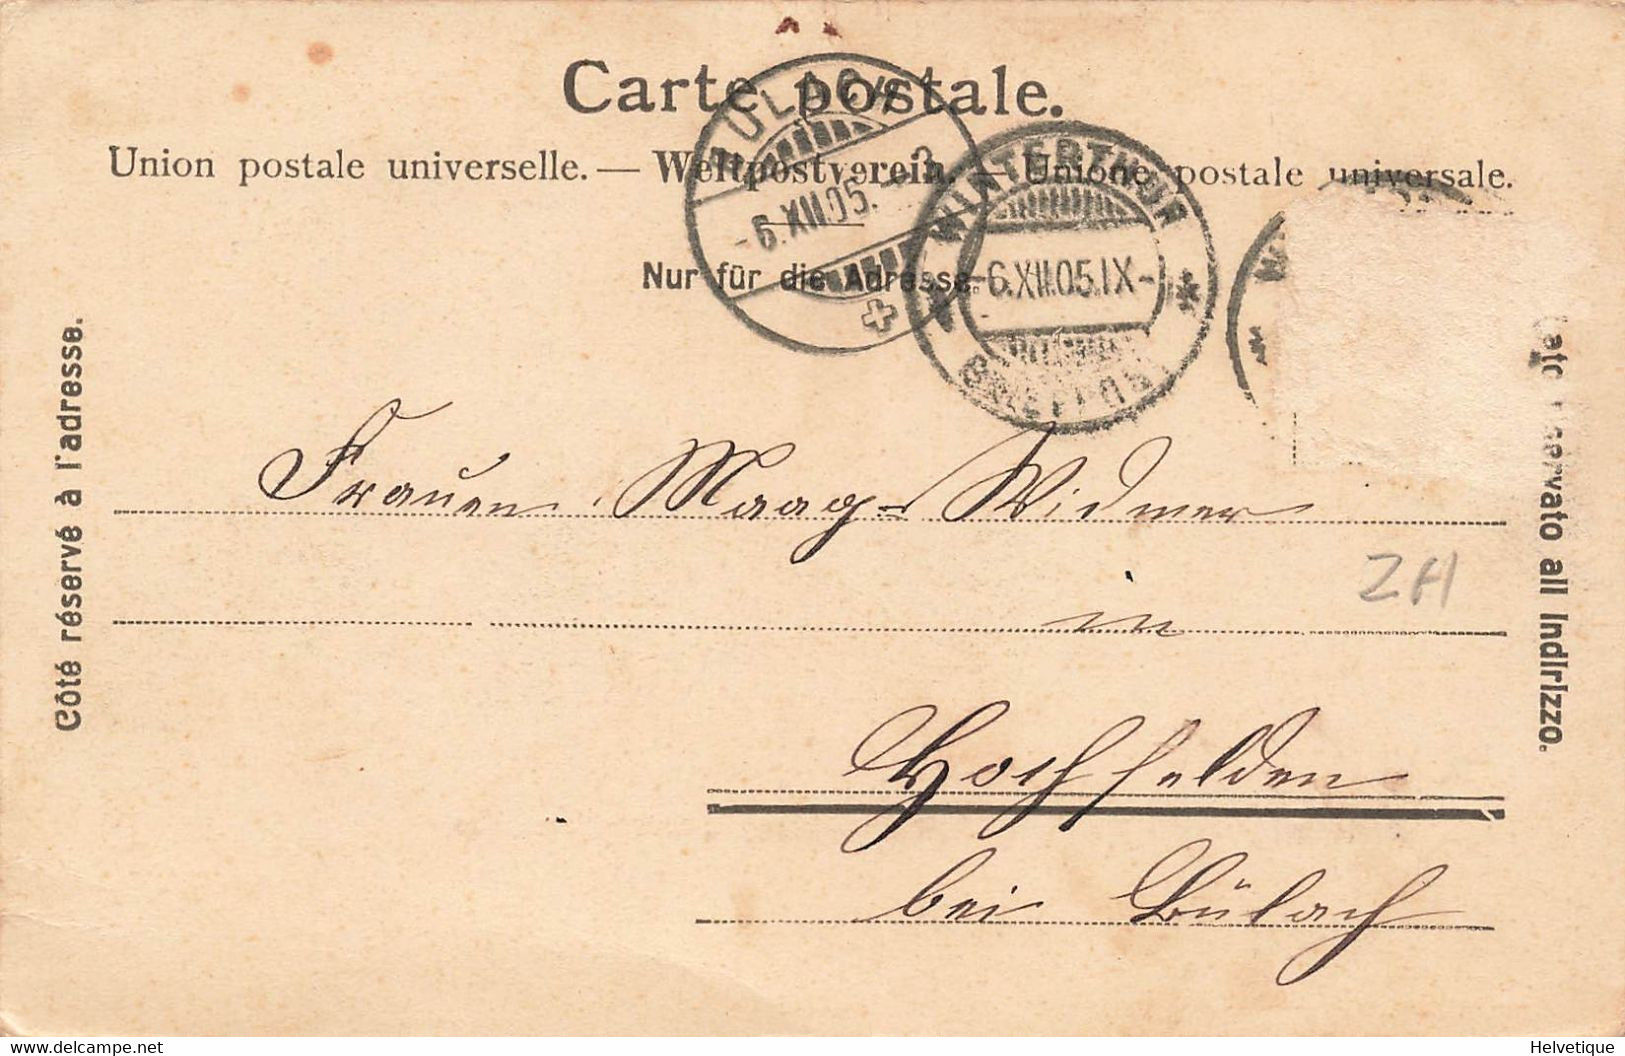 Carte postale.
Union postale universelle. — Weltpostverein. — Unione postale universale.
Nur für die Adresse.
BÜLACH
-6.XII.05.
WINTERTHUR
-6.XII.05.IX-
BRIEFPOST
Côté réservé à l'adresse.
Lato riservato all Indirizzo.
Frauen Maag-Widmer
in
ZH
Hochfelden
bei Bülach
www.delcampe.net
Helvetique